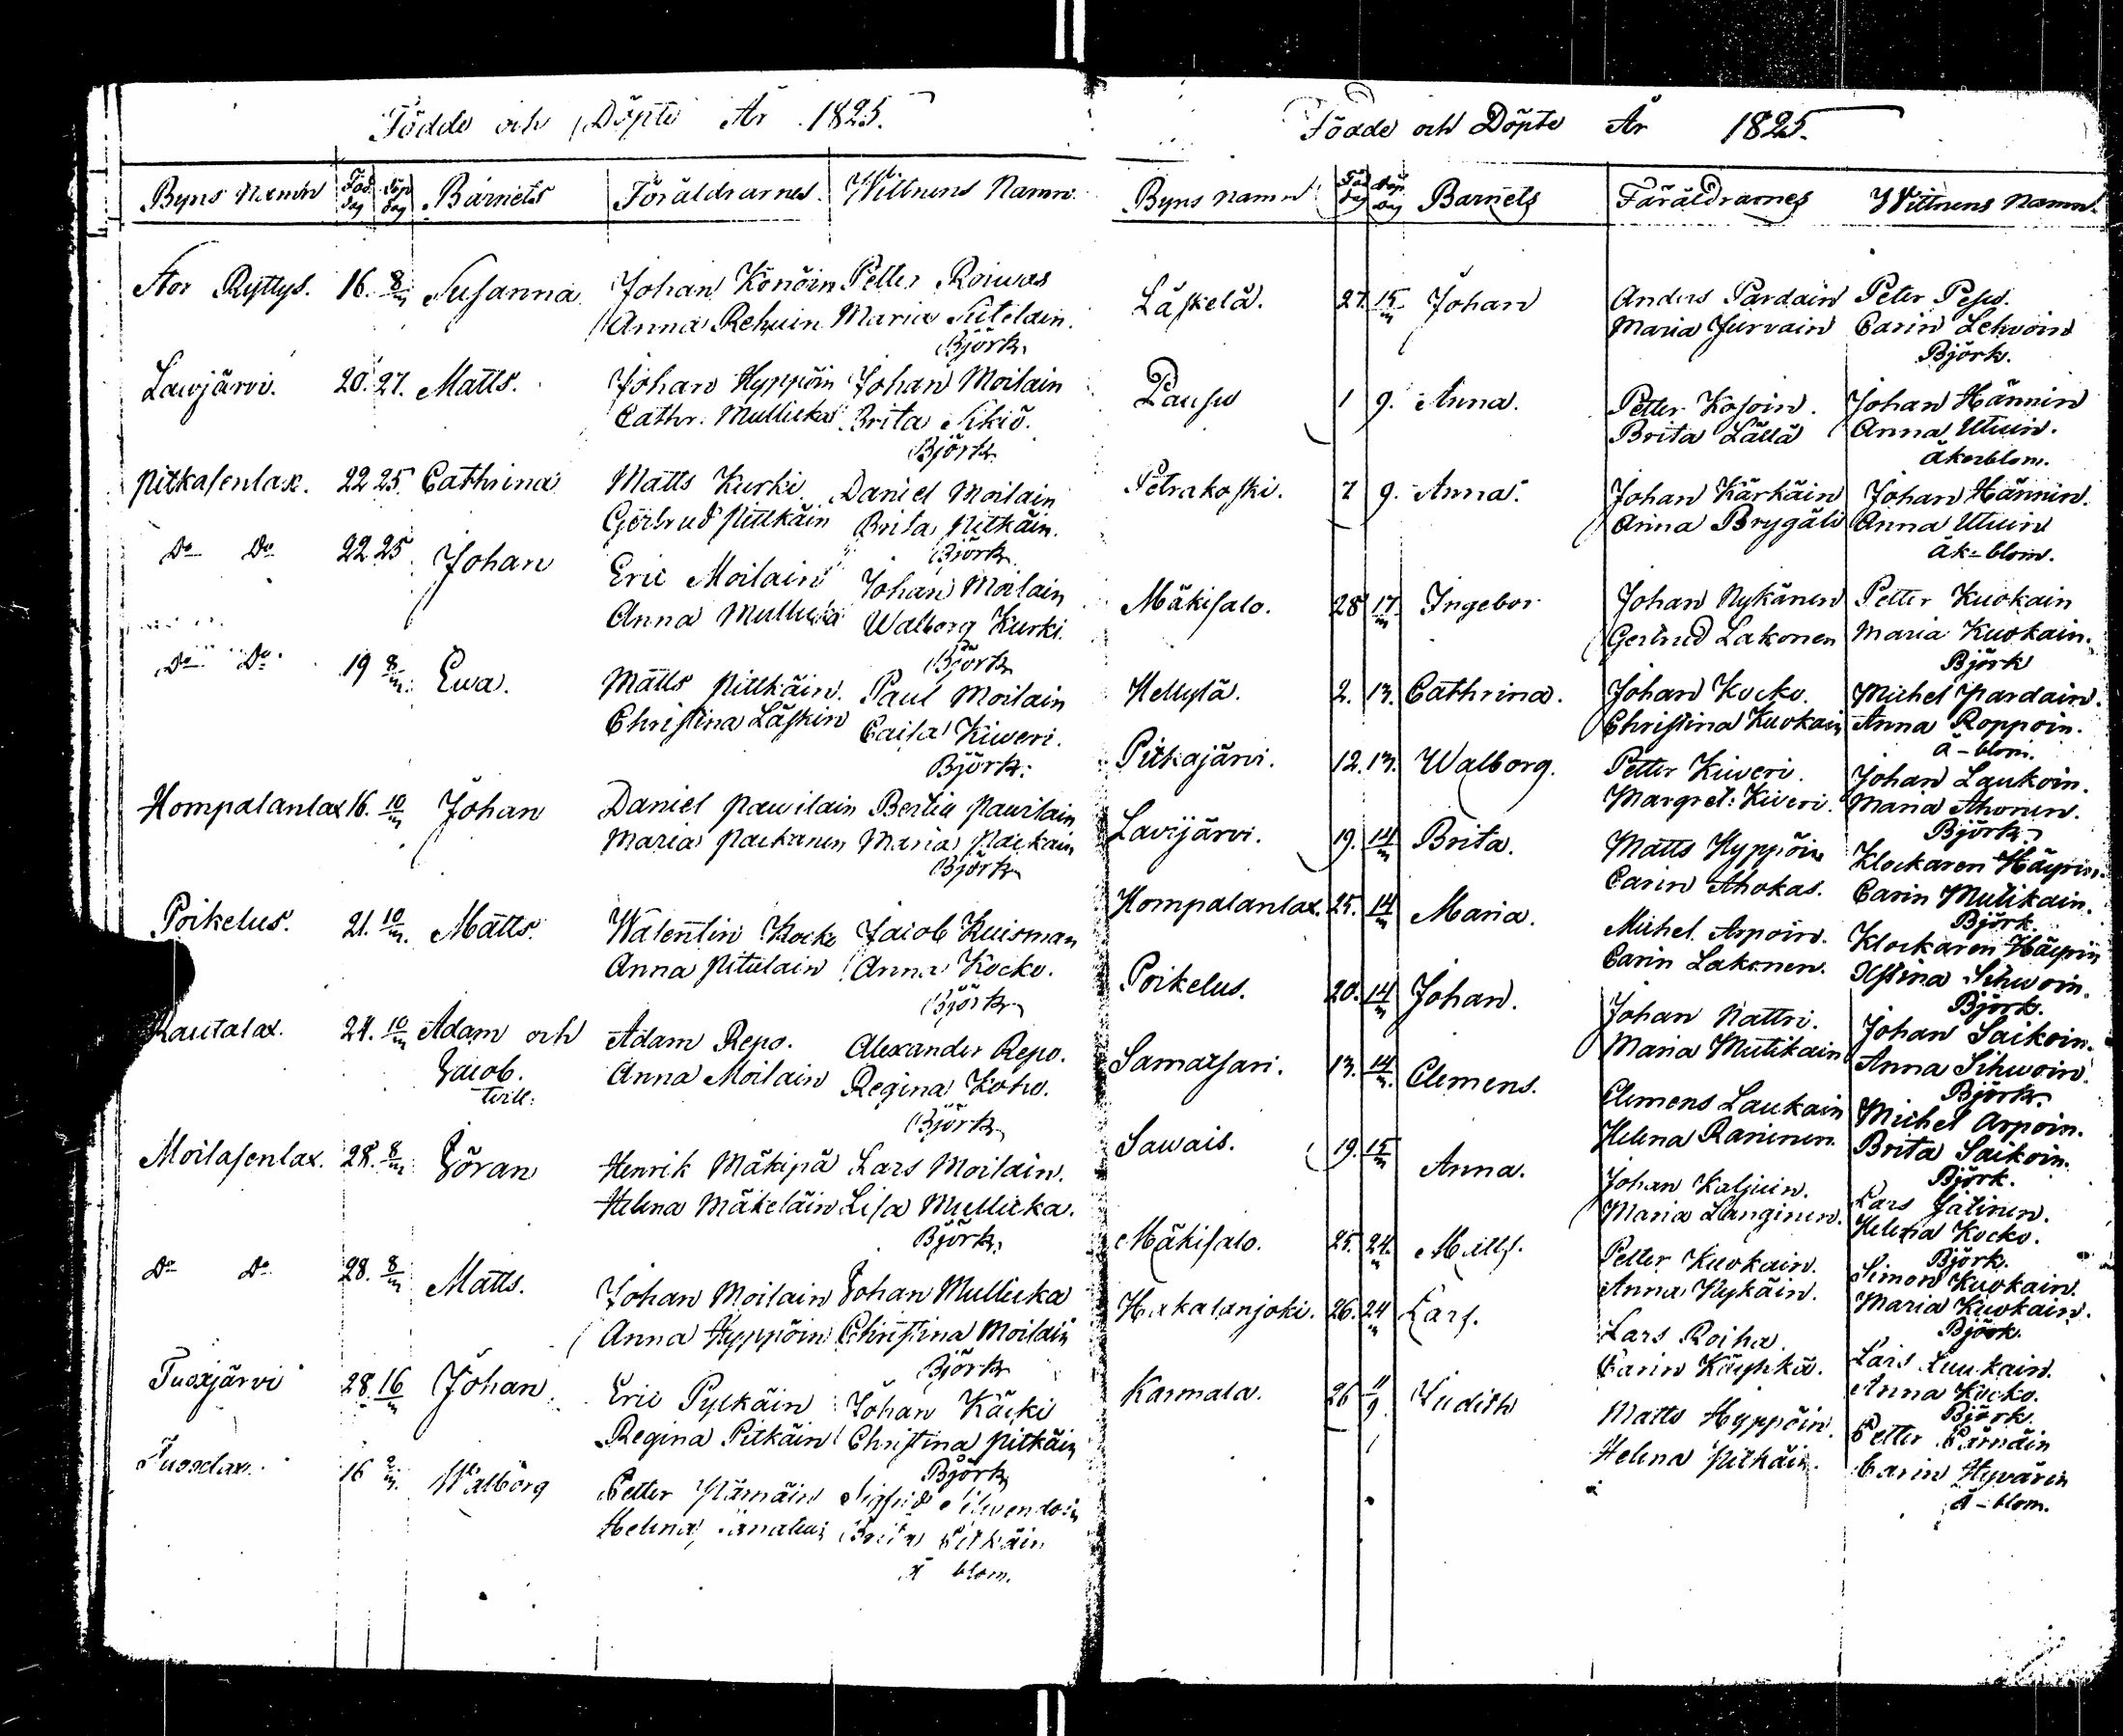 Födde och Döpte År 1825.
Byns Namn Föd. dag Döp dag Barnets Föräldrarnes Wittnens Namn.
Stor Ryttys. 16. 8/m Susanna Johan Könöin Petter Roiwas
Anna Rehuin Maria Siitelain.
Björk.
Lavijärvi. 20. 27. Matts. Johan Hyppöin Johan Moilain
Cathr. Mullicka Brita Sikiö.
Björk.
Pitkasenlax. 22 25. Cathrina Matts Kurki Daniel Moilain
Gertrud Pittkäin Brita Pitkäin.
Björk
Do Do 22 25 Johan Eric Moilain Johan Moilain
Anna Mullicka Walborg Kurki.
Björk
Do Do 19 8/m Ewa. Matts Pittkäin. Paul Moilain
Christina Läskin Caisa Kiweri.
Björk.
Hompalanlax 16. 10/m Johan Daniel Pawilain Bertil Pawilain
Maria Packanen Maria Packain
Björk
Poikelus. 21. 10/m. Matts. Walentin Kocko Jacob Kuisman
Anna Pitulain Anna Kocko.
Björk
Rautalax. 24. 10/m Adam och Adam Repo. Alexander Repo.
Jacob. Anna Moilain Regina Koho.
tvill: Björk
Moilasenlax. 28. 8/m Göran Henrik Mäkipä Lars Moilain.
Helena Mäkeläin Lisa Mullicka.
Björk.
Do Do 28. 8/m Matts. Johan Moilain Johan Mullicka
Anna Hyppöin Christina Moilain
Björk
Tuoxjärvi 28. 16/m Johan Eric Pylkäin Johan Käcki
Regina Pitkäin Christina Pitkäin
Björk
Tuoxlax. 16 Walborg Petter Pärnäin Sigfrid
Helena Brita Pitkäin
blom.
Födde och Döpte År 1825.
Byns namn Föd dag Döp. dag Barnets Föräldrarnes Wittnens Namn.
Läskelä. 27. 15/m Johan Anders Pardain Peter Pesu.
Maria Jurvain Carin Lehvoin
Björk.
Pausu 1 9. Anna. Petter Kosoin. Johan Hännin
Brita Lällä Anna Utuin.
Åkerblom.
Petrakoski. 7 9. Anna. Johan Kärkäin Johan Hännin.
Anna Brygäli Anna Utuin
Åk=blom.
Mäkisalo. 28 17/m Ingebor Johan Nykänen Petter Kuokain
Gertrud Lakonen Maria Kuokain.
Björk
Hellylä. 2. 13. Cathrina. Johan Kocko. Michel Pardain.
Christina Kuokain Anna Roppoin.
Å-blom.
Pitkajärvi. 12. 13. Walborg. Petter Kiweri. Johan Laukoin.
Margret: Kiveri. Maria Ahonen.
Björk.
Lavijärvi. 19. 14/m Brita. Matts Hyppöin Klockaren Häyrin.
Carin Ahokas. Carin Mutikain.
Björk.
Hompalanlax. 25. 14/m Maria. Michel Arpoin. Klockaren Häyrin
Carin Lakonen. Xstina Sihwoin.
Björk.
Poikelus. 20. 14/m Johan. Johan Nattri. Johan Saikoin.
Maria Mutikain Anna Sihwoin.
Björk.
Samatsari. 13. 14/m. Clemens. Clemens Laukain Michel Arpoin.
Helena Raninen. Brita Saikoin.
Björk.
Sawais. 19. 15/m Anna. Johan Kaljuin. Lars Jätinen.
Maria Langinen. Helena Kocko.
Björk.
Mäkisalo. 25. 24/m Matts. Petter Kuokain. Simon Kuokain.
Anna Nykäin. Maria Kuokain.
Björk.
Hakalanjoki. 26. 24/m Lars. Lars Roiha. Lars Luukain.
Carin Käyhkä. Anna Kocko.
Björk.
Karmala. 26 11/9. Judith Matts Hyppöin. Petter Pärnäin
Helena Pitkäin. Carin Hyvärin
Å-blom.